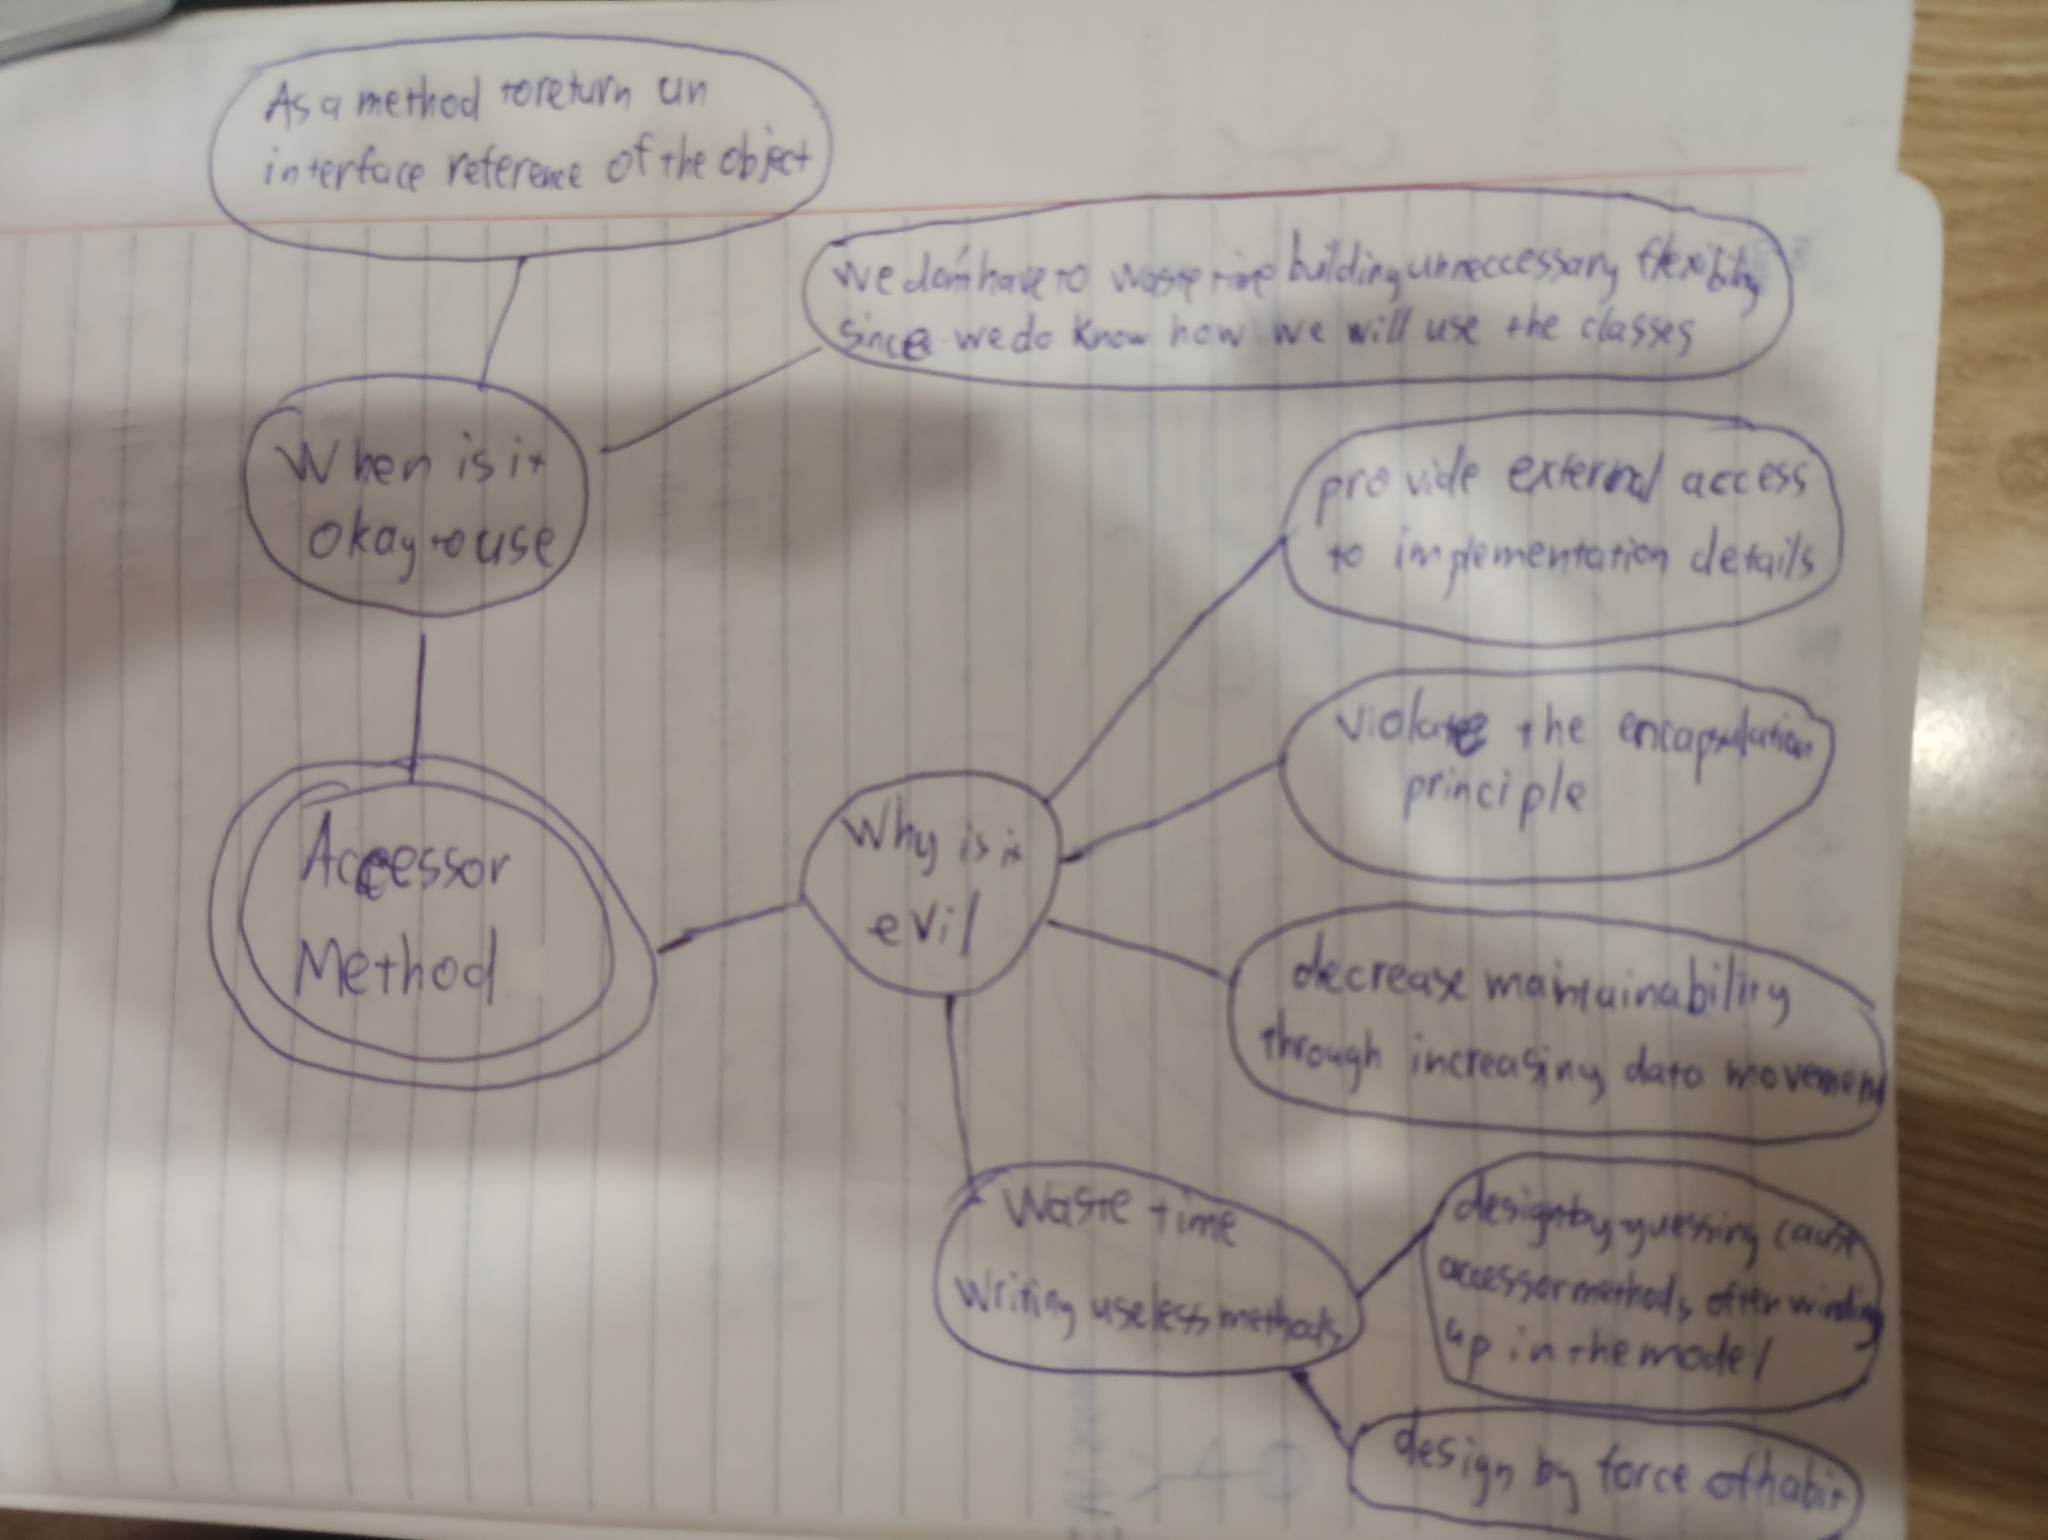 As a method to return an
interface reference of the object
We don't have to waste time building unneccessary flexibility
since we do know how we will use the classes
When is it
okay to use
provide external access
to implementation details
violate the encapsulation
principle
Why is it
evil
Accessor
Method
decrease maintainability
through increasing data movement
Waste time
writing useless methods
design by guessing cause
accessor methods often winding
up in the model
design by force of habit